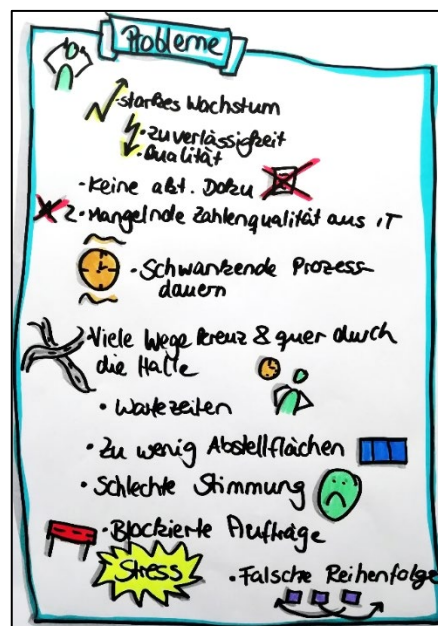 Probleme
starkes Wachstum
• Zuverlässigkeit
• Qualität
• Keine akt. Doku
1 2 • Mangelnde Zahlenqualität aus iT
• Schwankende Prozess-
dauern
• Viele Wege kreuz & quer durch
die Halle
• Wartezeiten
• Zu wenig Abstellflächen
• Schlechte Stimmung
• Blockierte Aufträge
Stress
• Falsche Reihenfolge